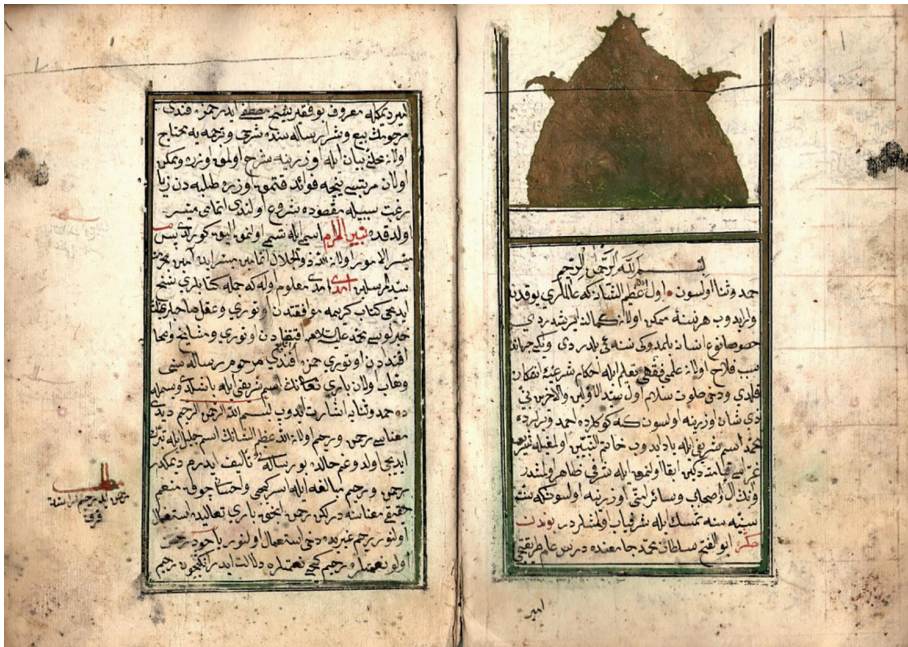 بسم الله الرحمن الرحيم
حمد وثنا اولسون اول عظيم الشان كه عالملرى يوقدن
وار ايدوب هر نسنه ممكن اولان كمالنه ايرشدردى
خصوصا نوع انسانه بلمدوكى نسنه يى بلدردى وايكى جهانده
سبب فلاح اولان علم فقهى تعليم ايله احكام شرعيه
قلدى ودخى صلوت سلام اول سيد الاولين والآخرين نبى
ذى شان اوزرينه اولسون كه كوكلرده احمد ويرلرده
محمد اسم شريفى ايله ياد ايدوب خاتم النبيين اولمغله شريعت
غراسى قيامته دكين ابقا اولنمق ايله شرفى ظاهر اولمشدر
وآنك آل واصحاب وسائر امتى اوزرينه اولسون كه سنت
سنيه سنه تمسك ايله شرفياب اولمشلردر بوندن
صكره ابو الفتح سلطان محمد جامعنده درس عام طريقتى
امير
امير ديمكله معروف بو فقير مصطفى ايدر حمزه افندى
مرحومك بيع وشرا رساله سنده شرحى وترجمه يه محتاج
اولان محلنى بيان ايله اوزرينه شرح اولمق اوزره وممكن
اولان مرتبه نيجه فوائد قتمق اوزره طلبه دن زياده
رغبت سببيله مقصوده شروع اولندى اتمامى ميسر
اولدقده اسمى ايله تسميه اولنمق لايق كورلدى پس
ميسر الامور اولان الله ذو الجلال اتمامنى ميسر ايده آمين بحرمة
سيد المرسلين ابتدى معلوم اوله كه جمله كتابلرى شيخ
ايديجى كتاب كريمه موافقتدن اوتورى وعقل صاحبلرينك
اقتدادن اوتورى حمزه افندى مرحوم رساله سنى
وهاب اولان بارى تعالينك اسم شريفى ايله باشلدى وبسمله
ده حمد وثنايه اشارت ايدوب بسم الله الرحمن الرحيم ديدى
معناسى رحمن ورحيم اولان الله عظيم الشانك اسم جليلى ايله
ايديجى اولدوغم حالده بو رساله يى تأليف ايدرم ديمكدر
رحمن ورحيم مبالغه ايله اسركيجى واحسانى چوق منعم
حقيقى معناسنه در لكن رحمن انجق بارى تعاليده استعمال
اولنور رحيم غيريده دخى استعمال اولنور ياخود رحمن
اولو نعمتلره ورحيم كچى نعمتلره دلالت ايدر انكيچون رحيم
مطلب
رحمن ايله رحيم اراسنده
فرق